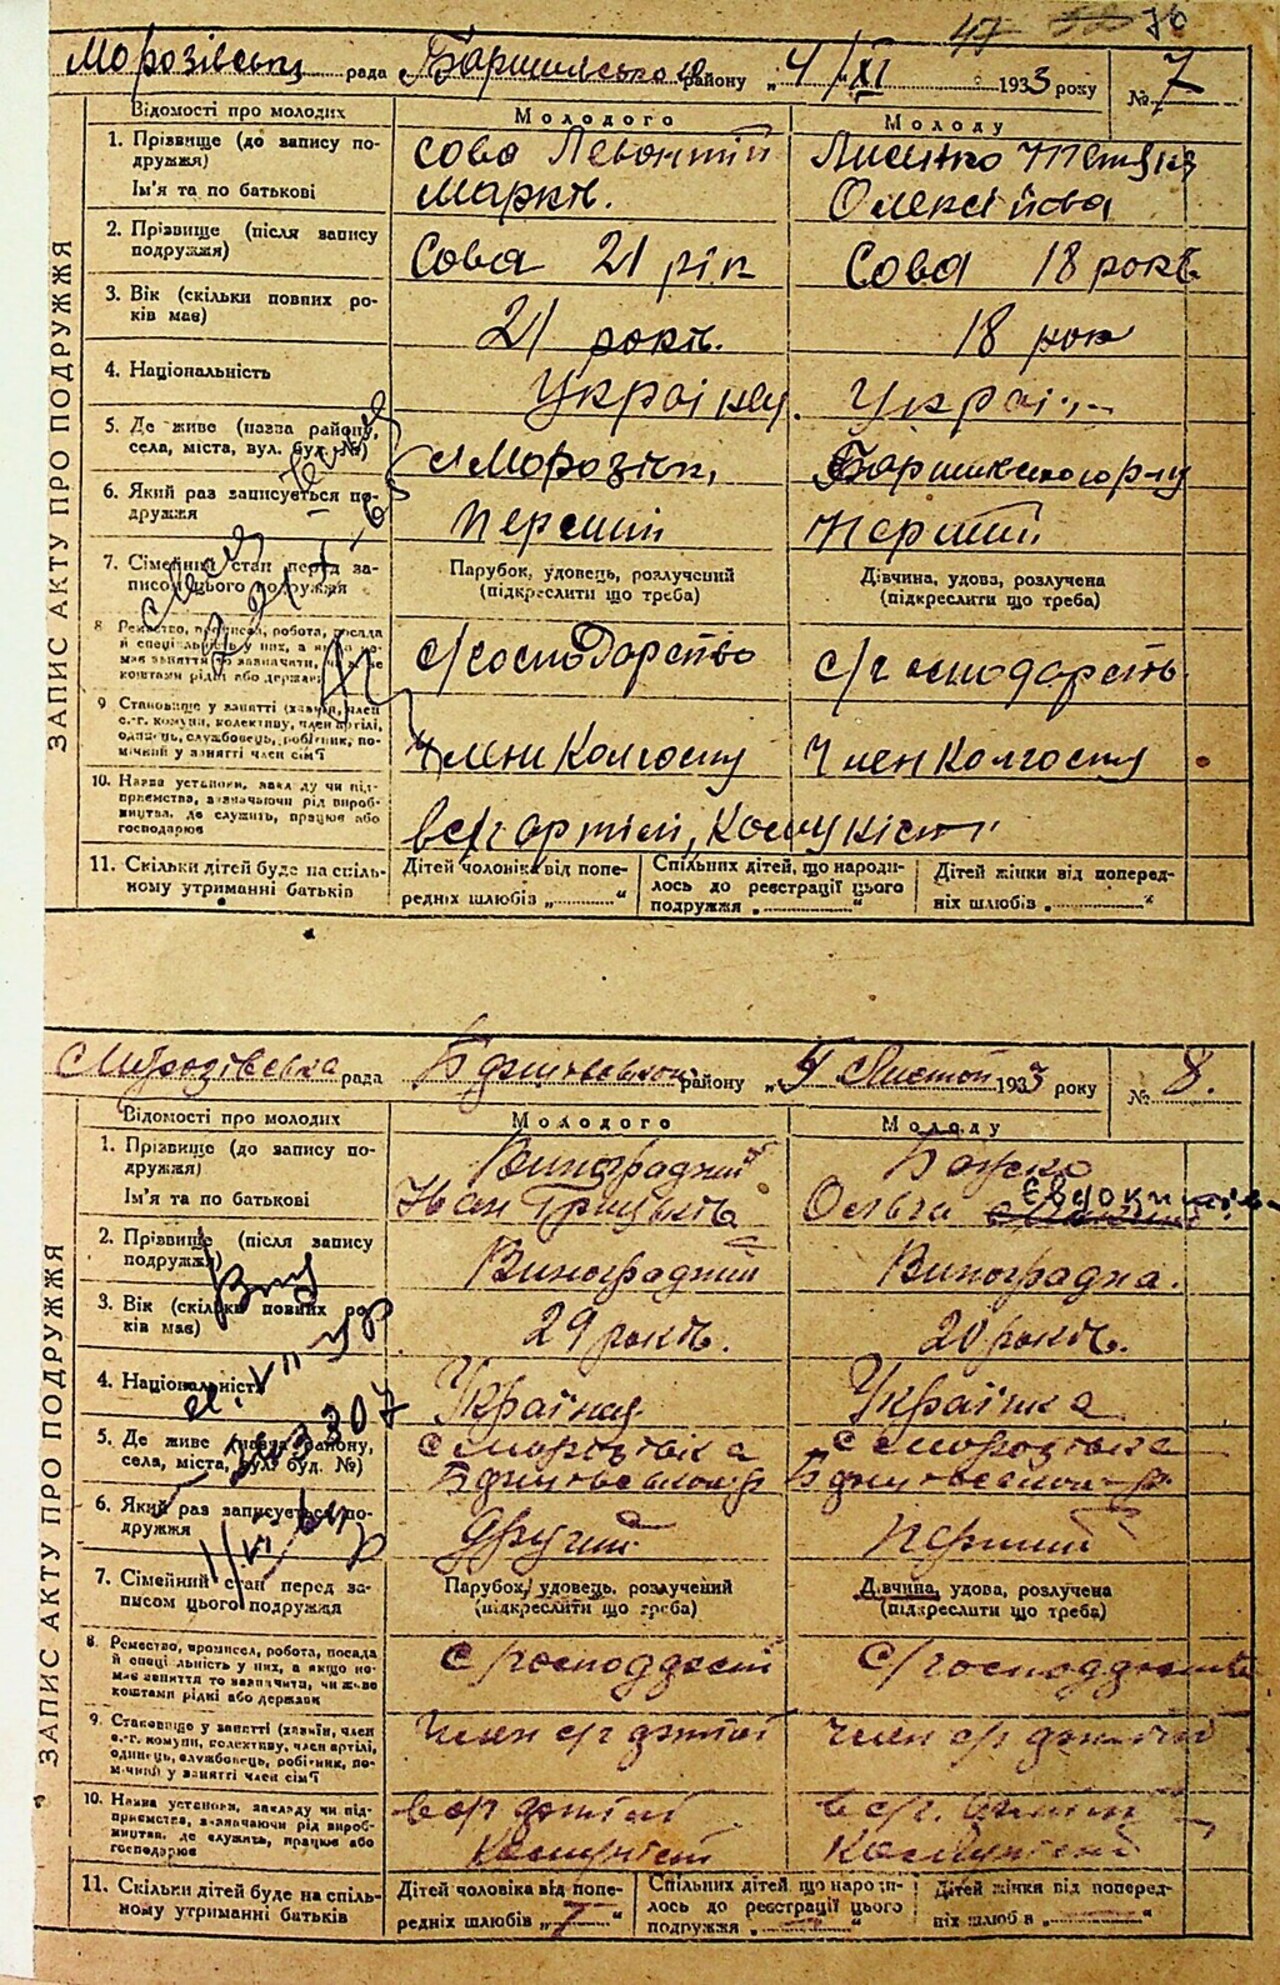 47 76
Морозівськ рада району „4/XI 1933 року № 7
ЗАПИС АКТУ ПРО ПОДРУЖЖЯ
Відомості про молодих Молодого Молоду
1. Прізвище (до запису по-
дружжя)
Ім'я та по батькові
Сова Левонтій
Марків.
Лисенко
Олексіївна
2. Прізвище (після запису
подружжя)
Сова 21 рік
Сова 18 років
3. Вік (скільки повних ро-
ків має)
21 років.
18 рок
4. Національність
Україн
Украї
5. Де живе (назва району,
села, міста, вул. буд. №)
с Морозівк,
6. Який раз записується по-
дружжя
Перший
Перший
7. Сімейний стан перед за-
писом цього подружжя
Парубок, удовець, розлучений
(підкреслити що треба)
Дівчина, удова, розлучена
(підкреслити що треба)
8 Ремество, промисел, робота, посада
й спеціальність у них, а якщо не-
має заняття то зазначати, чи живе
коштами рідні або держави
с/господарство
с/господарств
9 Становище у занятті (хазяїн, член
с.-г. комуни, колективу, член артілі,
одинець, службовець, робітник, по-
мічний у занятті член сім'ї
Член Колгоспу
Член Колгоспу
10. Назва установи, закладу чи під-
приємства, зазначаючи рід вироб-
ництва, де служить, працює або
господарює
в с/г артілі, Комуніст
11. Скільки дітей буде на спіль-
ному утриманні батьків
Дітей чоловіка від попе-
редніх шлюбів „ “
Спільних дітей, що народи-
лось до реєстрації цього
подружжя „ “
Дітей жінки від поперед-
ніх шлюбів „ “
Морозівська рада району „4 Листоп 1933 року № 8.
ЗАПИС АКТУ ПРО ПОДРУЖЖЯ
Відомості про молодих Молодого Молоду
1. Прізвище (до запису по-
дружжя)
Ім'я та по батькові
Виноградний
Іван Грицьків
Ольга Євдоким
2. Прізвище (після запису
подружжя)
Виноградний
Виноградна.
3. Вік (скільки повних ро-
ків має)
29 років.
20 років.
4. Національність
Українец
Українка
5. Де живе (назва району,
села, міста, вул. буд. №)
с Морозівка
с Морозівка
6. Який раз записується по-
дружжя
Другий
Перший
7. Сімейний стан перед за-
писом цього подружжя
Парубок, удовець, розлучений
(підкреслити що треба)
Дівчина, удова, розлучена
(підкреслити що треба)
8. Ремество, промисел, робота, посада
й спеціальність у них, а якщо не-
має заняття то зазначати, чи живе
коштами рідні або держави
9. Становище у занятті (хазяїн, член
с.-г. комуни, колективу, член артілі,
одинець, службовець, робітник, по-
мічний у занятті член сім'ї
Член с/г артілі
член с/г артілі
10. Назва установи, закладу чи під-
приємства, зазначаючи рід вироб-
ництва, де служить, працює або
господарює
в с/г артілі
Комуніст
в с/г. артілі
Комуніст
11. Скільки дітей буде на спіль-
ному утриманні батьків
Дітей чоловіка від попе-
редніх шлюбів „ “
Спільних дітей, що народи-
лось до реєстрації цього
подружжя „ “
Дітей жінки від поперед-
ніх шлюбів „ “